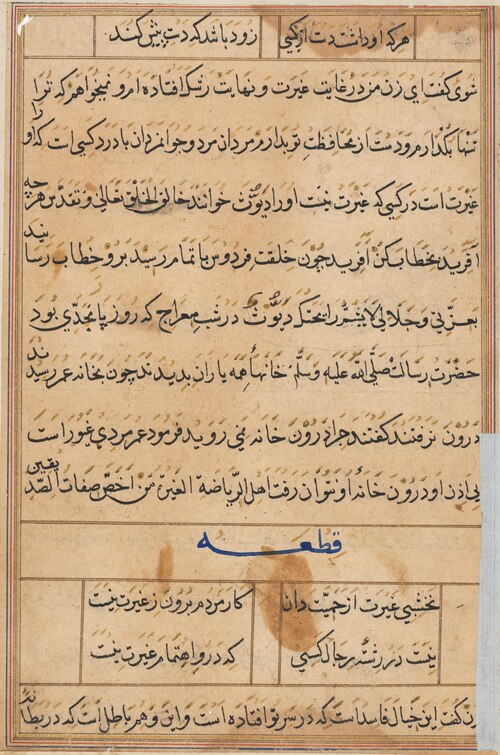 هر که او داشت دست از کسی زود باشد که دست پیش کند
شوی گفت ای زن من در غایت غیرت و نهایت رشک افتاده‌ام و نمیخواهم که ترا
تنها بگذارم و دست از محافظت تو بدارم مردان مرد و جوانمردان با درد کسی است که او را
غیرت است در کسی که غیرت نیست او را دیوث خوانند خالق الخلق تعالی و تقدس هر چه
آفرید بخطاب کن آفرید چون خلقت فردوس باتمام رسید برو خطاب رسانید
بعزتی و جلالی لا یشم رایحتک دیوث در شب معراج که روز پا بخدی بود
حضرت رسالت صلی الله علیه وسلم خانها همه یاران بدیدند چون بخانه عمر رسیدند
درون نرفتند گفتند چرا درون خانه نمی روید فرمود عمر مردی غیور است
بی اذن او درون خانه او نتوان رفت اهل الریاضة الغیرة من اخص صفات الصدیقین
قطعه
نخشبی غیرت از حمیت دان کار مردم برون ز غیرت نیست
نیست در رشته رجال کسی که درو اهتمام غیرت نیست
زن گفت این خیال فاسد است که در سر تو افتاده است و این وهم باطل است که در بطانه